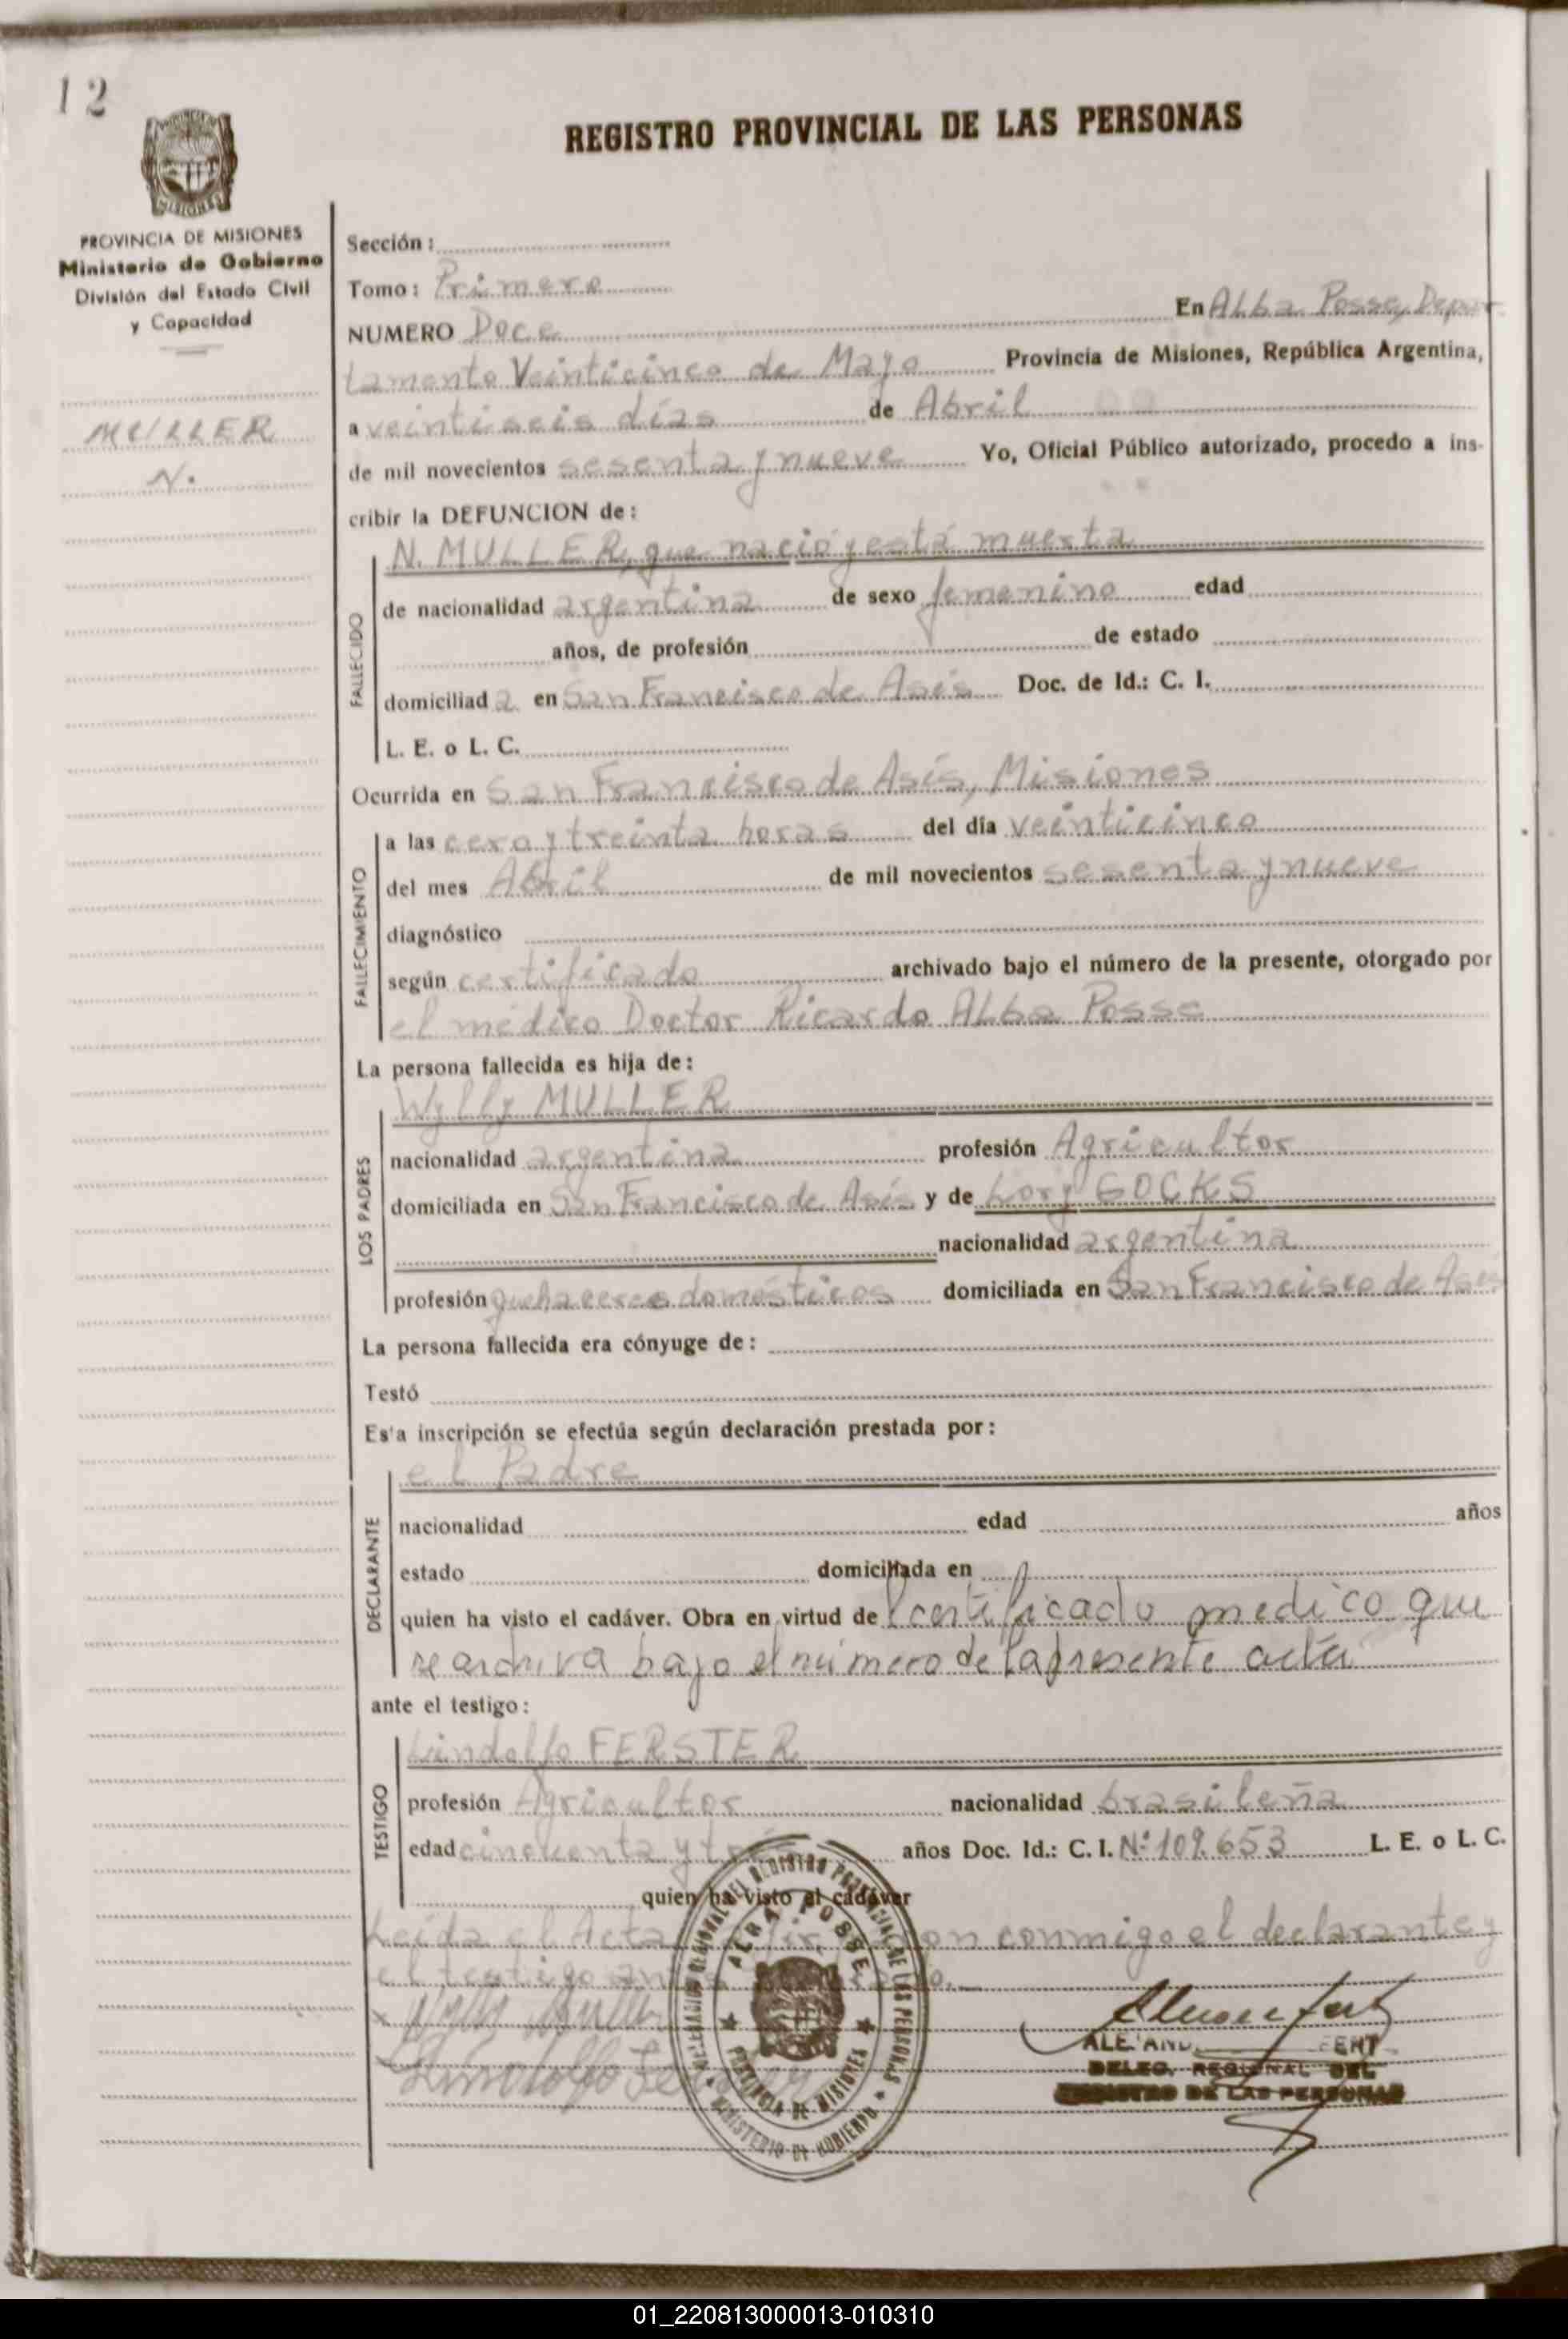 12
REGISTRO PROVINCIAL DE LAS PERSONAS
MISIONES
PROVINCIA DE MISIONES
Ministerio de Gobierno
División del Estado Civil
y Capacidad
MULLER
N.
Sección :
Tomo : Primero
NUMERO Doce En Alba Posse, Depar
tamento Veinticinco de Mayo Provincia de Misiones, República Argentina,
a veintiseis días de Abril
de mil novecientos sesenta y nueve Yo, Oficial Público autorizado, procedo a ins-
cribir la DEFUNCION de :
FALLECIDO
N. MULLER, que nació y está muerta
de nacionalidad argentina de sexo femenino edad
años, de profesión de estado
domiciliad a en San Francisco de Asís Doc. de Id.: C. I.
L. E. o L. C.
Ocurrida en San Francisco de Asís, Misiones
FALLECIMIENTO
a las cero y treinta horas del día veinticinco
del mes Abril de mil novecientos sesenta y nueve
diagnóstico
según certificado archivado bajo el número de la presente, otorgado por
el médico Doctor Ricardo Alba Posse
La persona fallecida es hija de :
LOS PADRES
Wylly MULLER
nacionalidad argentina profesión Agricultor
domiciliada en San Francisco de Asís y de Lory GOCKS
nacionalidad argentina
profesión quehaceres domésticos domiciliada en San Francisco de Asís
La persona fallecida era cónyuge de :
Testó
Es'a inscripción se efectúa según declaración prestada por :
DECLARANTE
el Padre
nacionalidad edad años
estado domiciliada en
quien ha visto el cadáver. Obra en virtud del certificado medico que
se archiva bajo el número de la presente acta
ante el testigo :
TESTIGO
Lindolfo FERSTER
profesión Agricultor nacionalidad brasileña
edad cincuenta y tres años Doc. Id.: C. I. Nº 109.653 L. E. o L. C.
quien ha visto el cadáver
Leída el Acta conmigo el declarante y
el testigo
DELEGACION REGIONAL DEL REGISTRO PROVINCIAL DE LAS PERSONAS
ALBA POSSE
PROVINCIA DE MISIONES
MINISTERIO DE GOBIERNO
Lindolfo
DELEG. REGIONAL DEL
REGISTRO DE LAS PERSONAS
01_220813000013-010310